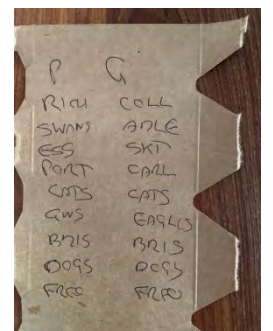 P G
RICH COLL
SWANS ADLE
ESS SKT
PORT CARL
CATS CATS
GWS EAGLES
BRIS BRIS
DOGS DOGS
FREO FREO